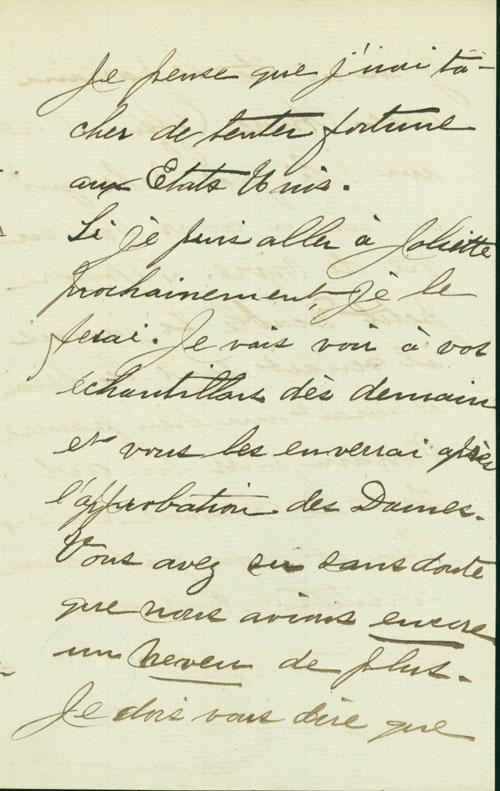 Je pense que j'irai tâ-
cher de tenter fortune
aux Etats Unis.
Si je puis aller à Joliette
prochainement je le
ferai. Je vais voir à vos
échantillons dès demain
et vous les enverrai après
l'approbation des Dames.
Vous avez su sans doute
que nous avions encore
un neveu de plus.
Je dois vous dire que